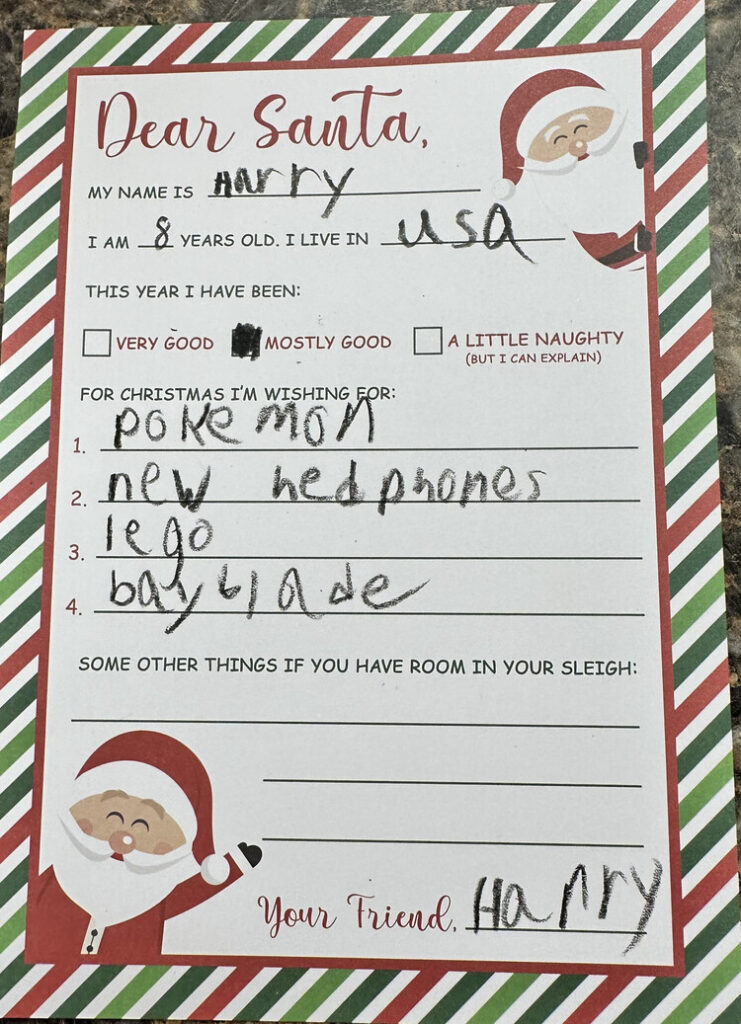 Dear Santa,
MY NAME IS Harry
I AM 8 YEARS OLD. I LIVE IN usa
THIS YEAR I HAVE BEEN:
VERY GOOD MOSTLY GOOD A LITTLE NAUGHTY
(BUT I CAN EXPLAIN)
FOR CHRISTMAS I'M WISHING FOR:
1. pokemon
2. new hedphones
3. lego
4. bayblade
SOME OTHER THINGS IF YOU HAVE ROOM IN YOUR SLEIGH:
Your Friend, Harry